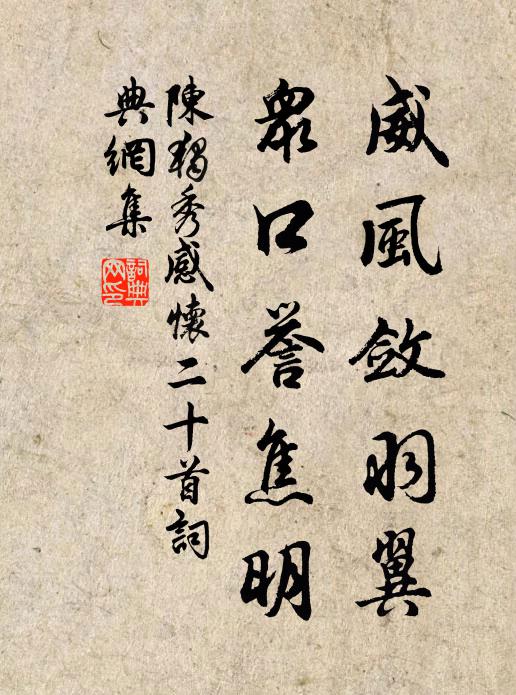 威風斂羽翼
眾口譽焦明
陳獨秀感懷二十首詞
典網集
詞典
网印